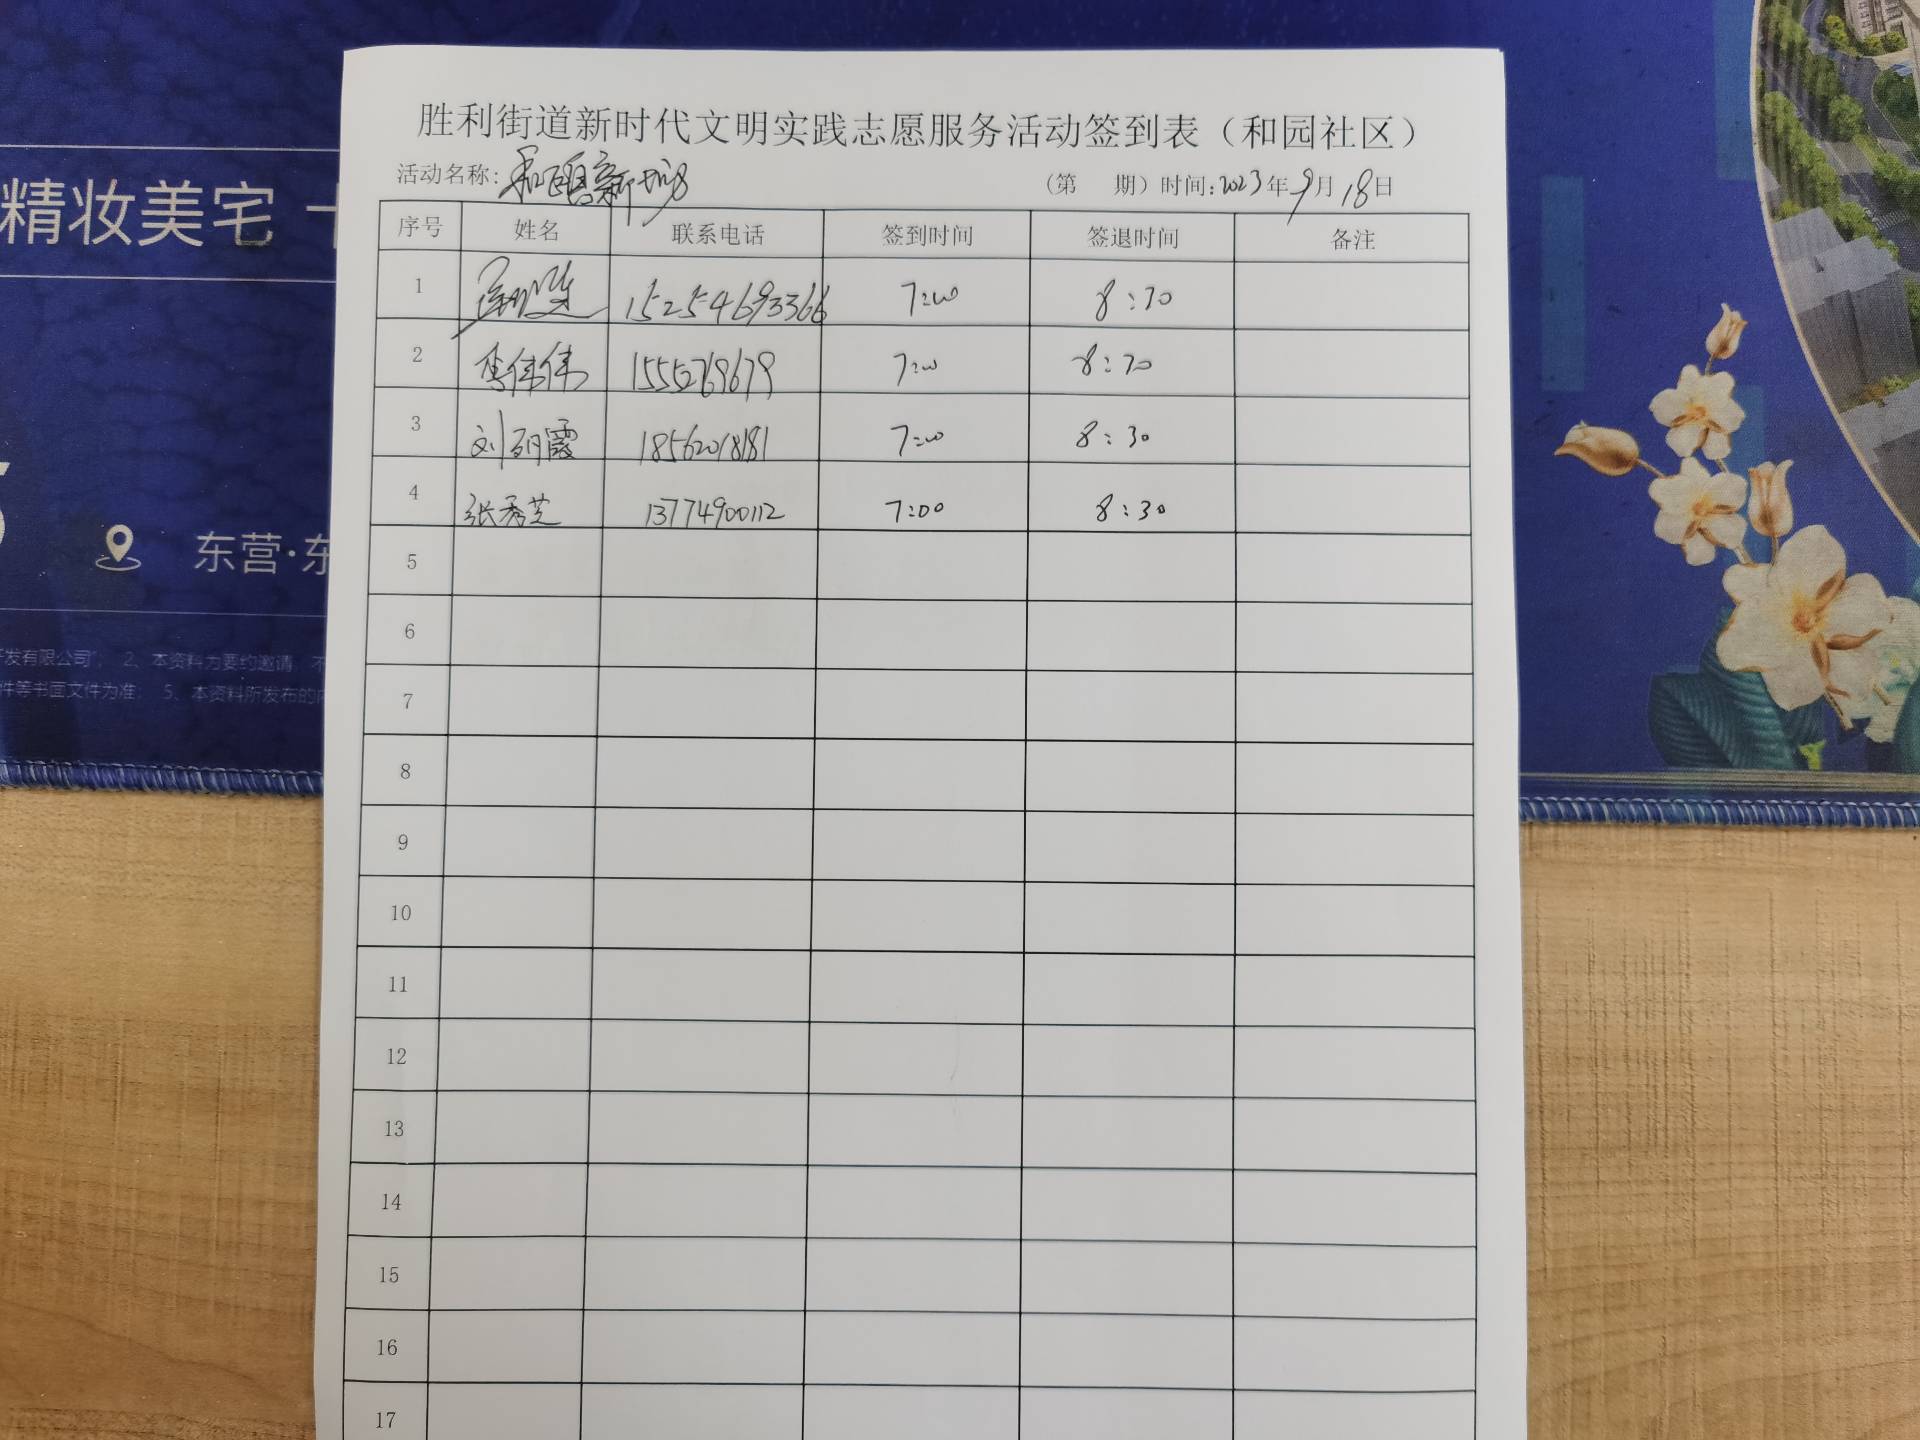 胜利街道新时代文明实践志愿服务活动签到表（和园社区）
活动名称：
（第 期）时间：2023年9月18日
序号 姓名 联系电话 签到时间 签退时间 备注
1 15254693366 7:00 8:30
2 李伟伟 15552769679 7:00 8:30
3 刘丽霞 18562018181 7:00 8:30
4 张秀芝 13774900112 7:00 8:30
5
6
7
8
9
10
11
12
13
14
15
16
17
精妆美宅
东营·东
开发有限公司”； 2、本资料为要约邀请，不
件等书面文件为准； 5、本资料所发布的